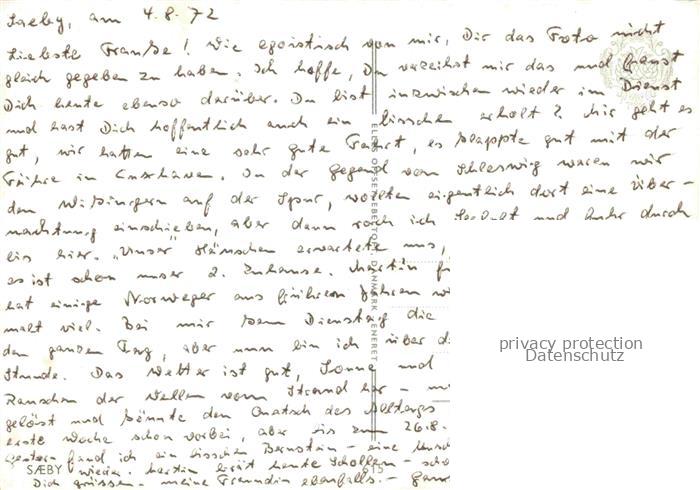 Saeby, am 4.8.72
Liebste Franke! Wie egoistisch von mir, Dir das Foto nicht
gleich gegeben zu haben. Ich hoffe, Du verzeihst mir das und
Dich heute ebenso darüber. Du bist inzwischen wieder im Dienst
und hast Dich hoffentlich auch ein bisschen erholt? Mir geht es
gut, wir hatten eine sehr gute Fahrt, es klappte gut mit der
Fähre in Cuxhaven. In der Gegend von Schleswig waren wir
den Wikingern auf der Spur, wollten eigentlich dort eine Über-
nachtung einschieben, aber dann roch ich und fuhr durch
bis hier. "Unser Häuschen erwartete uns,
es ist schon unser 2. Zuhause. Martin
hat einige Norweger aus früheren Jahren
malt viel. Bei mir kam Dienstag die
den ganzen Tag, aber nun bin ich über
Stunde. Das Wetter ist gut, Sonne und
Rauschen der Wellen vom Strand her -
gelöst und könnte den Quatsch des Alltags
erste Woche schon vorbei, aber bis zum 26.8.
Gestern fand ich ein bisschen Bernstein - eine
wieder. Martin brät heute Schollen -
Dich grüssen - meine Freundin ebenfalls. -
SÆBY
613
ELIAS OFFSET BEBERTONE, DANMARK ENERET
privacy protection
Datenschutz